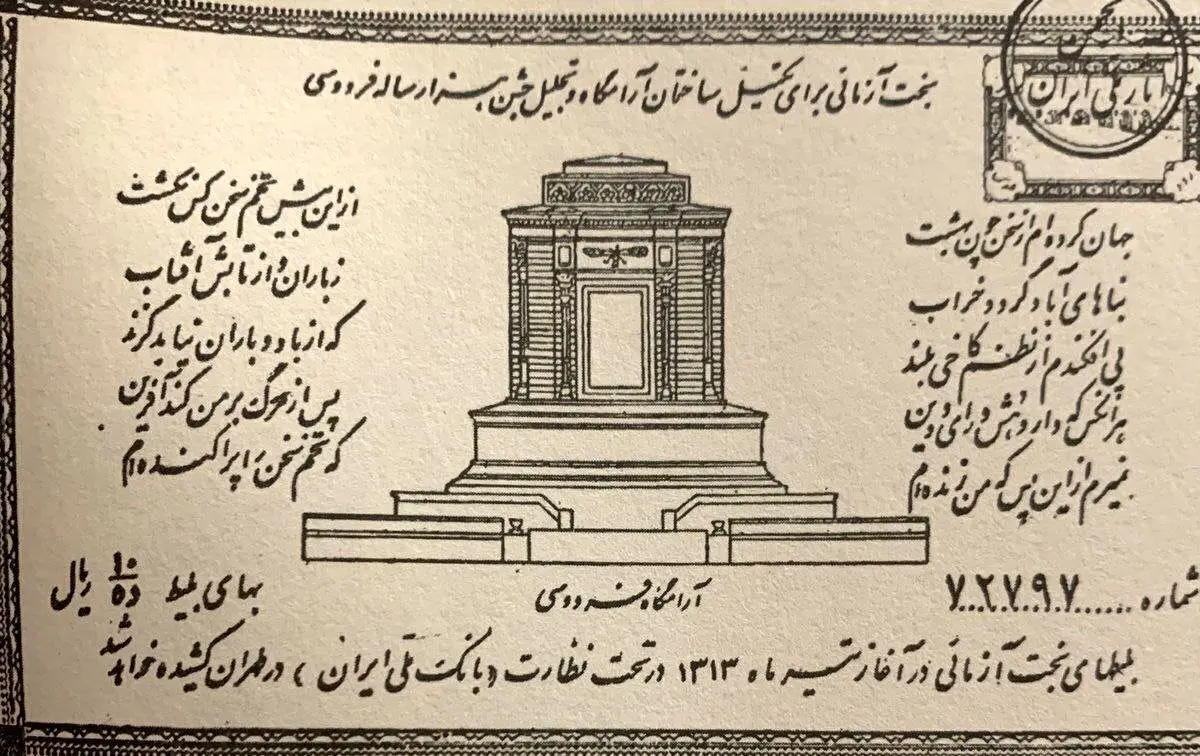 انجمن
آثار ملی ایران
بخت آزمائی برای تکمیل ساختمان آرامگاه و تجلیل جشن هزار ساله فردوسی
جهان کرده ام از سخن چون بهشت از این بیش تخم سخن کس نکشت
بناهای آباد گردد خراب ز باران و از تابش آفتاب
پی افکندم از نظم کاخی بلند که از باد و باران نیابد گزند
هر آنکس که دارد هش و رای و دین پس از مرگ بر من کند آفرین
نمیرم از این پس که من زنده ام که تخم سخن را پراکنده ام
شماره ......۷۲۷۹۷ آرامگاه فردوسی بهای بلیط ۱۰ ده ریال
بلیطهای بخت آزمائی در آغاز تیر ماه ۱۳۱۳ در تحت نظارت (بانک ملی ایران) در طهران کشیده خواهد شد